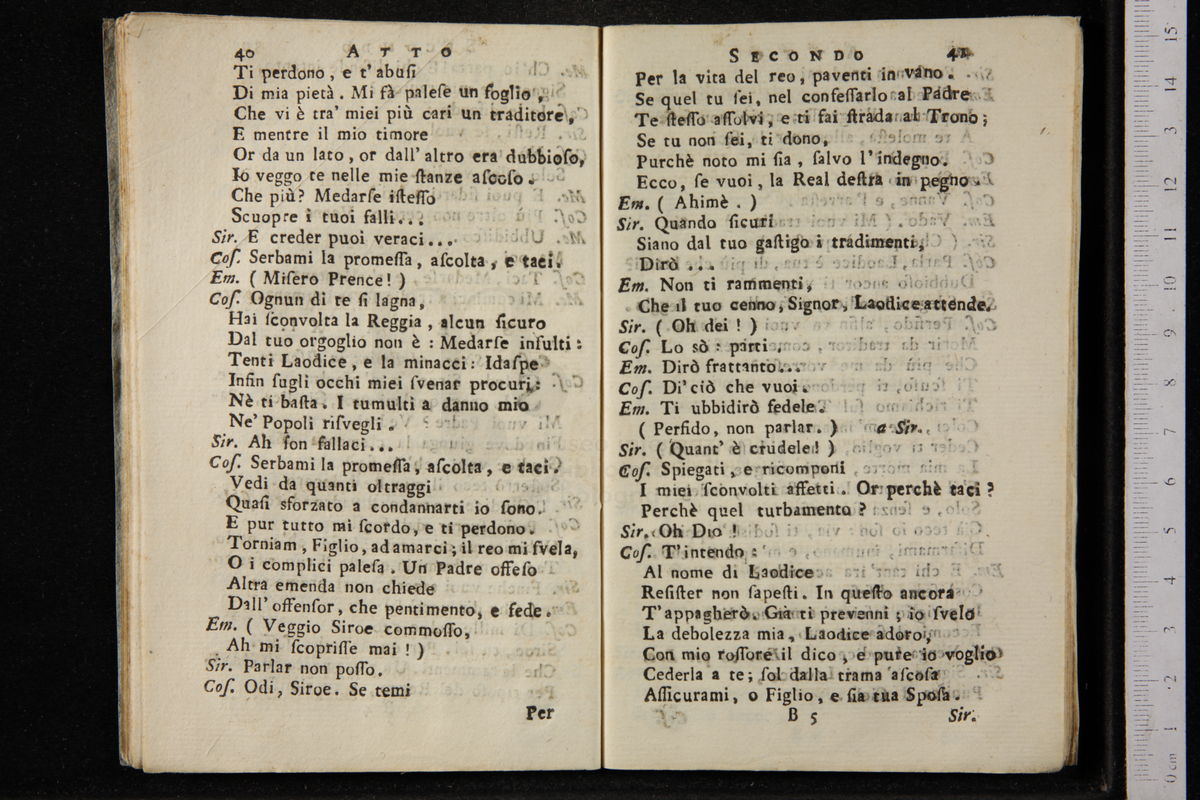 40 ATTO
Ti perdono, e t'abusi
Di mia pietà. Mi fà paleſe un foglio,
Che vi è tra' miei più cari un traditore,
E mentre il mio timore
Or da un lato, or dall'altro era dubbioſo,
Io veggo te nelle mie ſtanze aſcoſo.
Che più? Medarſe iſteſſo
Scuopre i tuoi falli...
Sir. E creder puoi veraci...
Coſ. Serbami la promeſſa, aſcolta, e taci.
Em. (Miſero Prence!)
Coſ. Ognun di te ſi lagna,
Hai ſconvolta la Reggia, alcun ſicuro
Dal tuo orgoglio non è: Medarſe inſulti:
Tenti Laodice, e la minacci: Idaſpe
Infin ſugli occhi miei ſvenar procuri:
Nè ti baſta. I tumulti a danno mio
Ne' Popoli riſvegli.
Sir. Ah ſon fallaci...
Coſ. Serbami la promeſſa, aſcolta, e taci.
Vedi da quanti oltraggi
Quaſi sforzato a condannarti io ſono.
E pur tutto mi ſcordo, e ti perdono.
Torniam, Figlio, ad amarci; il reo mi ſvela,
O i complici paleſa. Un Padre offeſo
Altra emenda non chiede
Dall'offenſor, che pentimento, e fede.
Em. (Veggio Siroe commoſſo,
Ah mi ſcopriſſe mai!)
Sir. Parlar non poſſo.
Coſ. Odi, Siroe. Se temi
Per
SECONDO 41
Per la vita del reo, paventi in vano.
Se quel tu ſei, nel confeſſarlo al Padre
Te ſteſſo aſſolvi, e ti fai ſtrada al Trono;
Se tu non ſei, ti dono,
Purchè noto mi ſia, ſalvo l'indegno.
Ecco, ſe vuoi, la Real deſtra in pegno.
Em. (Ahimè.)
Sir. Quando ſicuri
Siano dal tuo gaſtigo i tradimenti,
Dirò...
Em. Non ti rammenti,
Che il tuo cenno, Signor, Laodice attende.
Sir. (Oh dei!)
Coſ. Lo sò: parti.
Em. Dirò frattanto...
Coſ. Di' ciò che vuoi.
Em. Ti ubbidirò fedele.
(Perfido, non parlar.) a Sir.
Sir. (Quant' è crudele!)
Coſ. Spiegati, e ricomponi
I miei ſconvolti affetti. Or perchè taci?
Perchè quel turbamento?
Sir. Oh Dio!
Coſ. T'intendo:
Al nome di Laodice
Reſiſter non ſapeſti. In queſto ancora
T'appagherò. Già ti prevenni; io ſvelo
La debolezza mia, Laodice adoro,
Con mio roſſore il dico, e pure io voglio
Cederla a te; ſol dalla trama aſcoſa
Aſſicurami, o Figlio, e ſia tua Spoſa.
B 5 Sir.